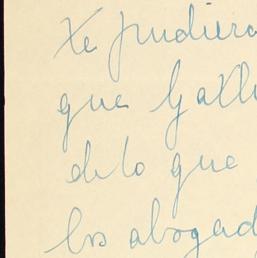 te pudiera
que Gall
de lo que
los abogad